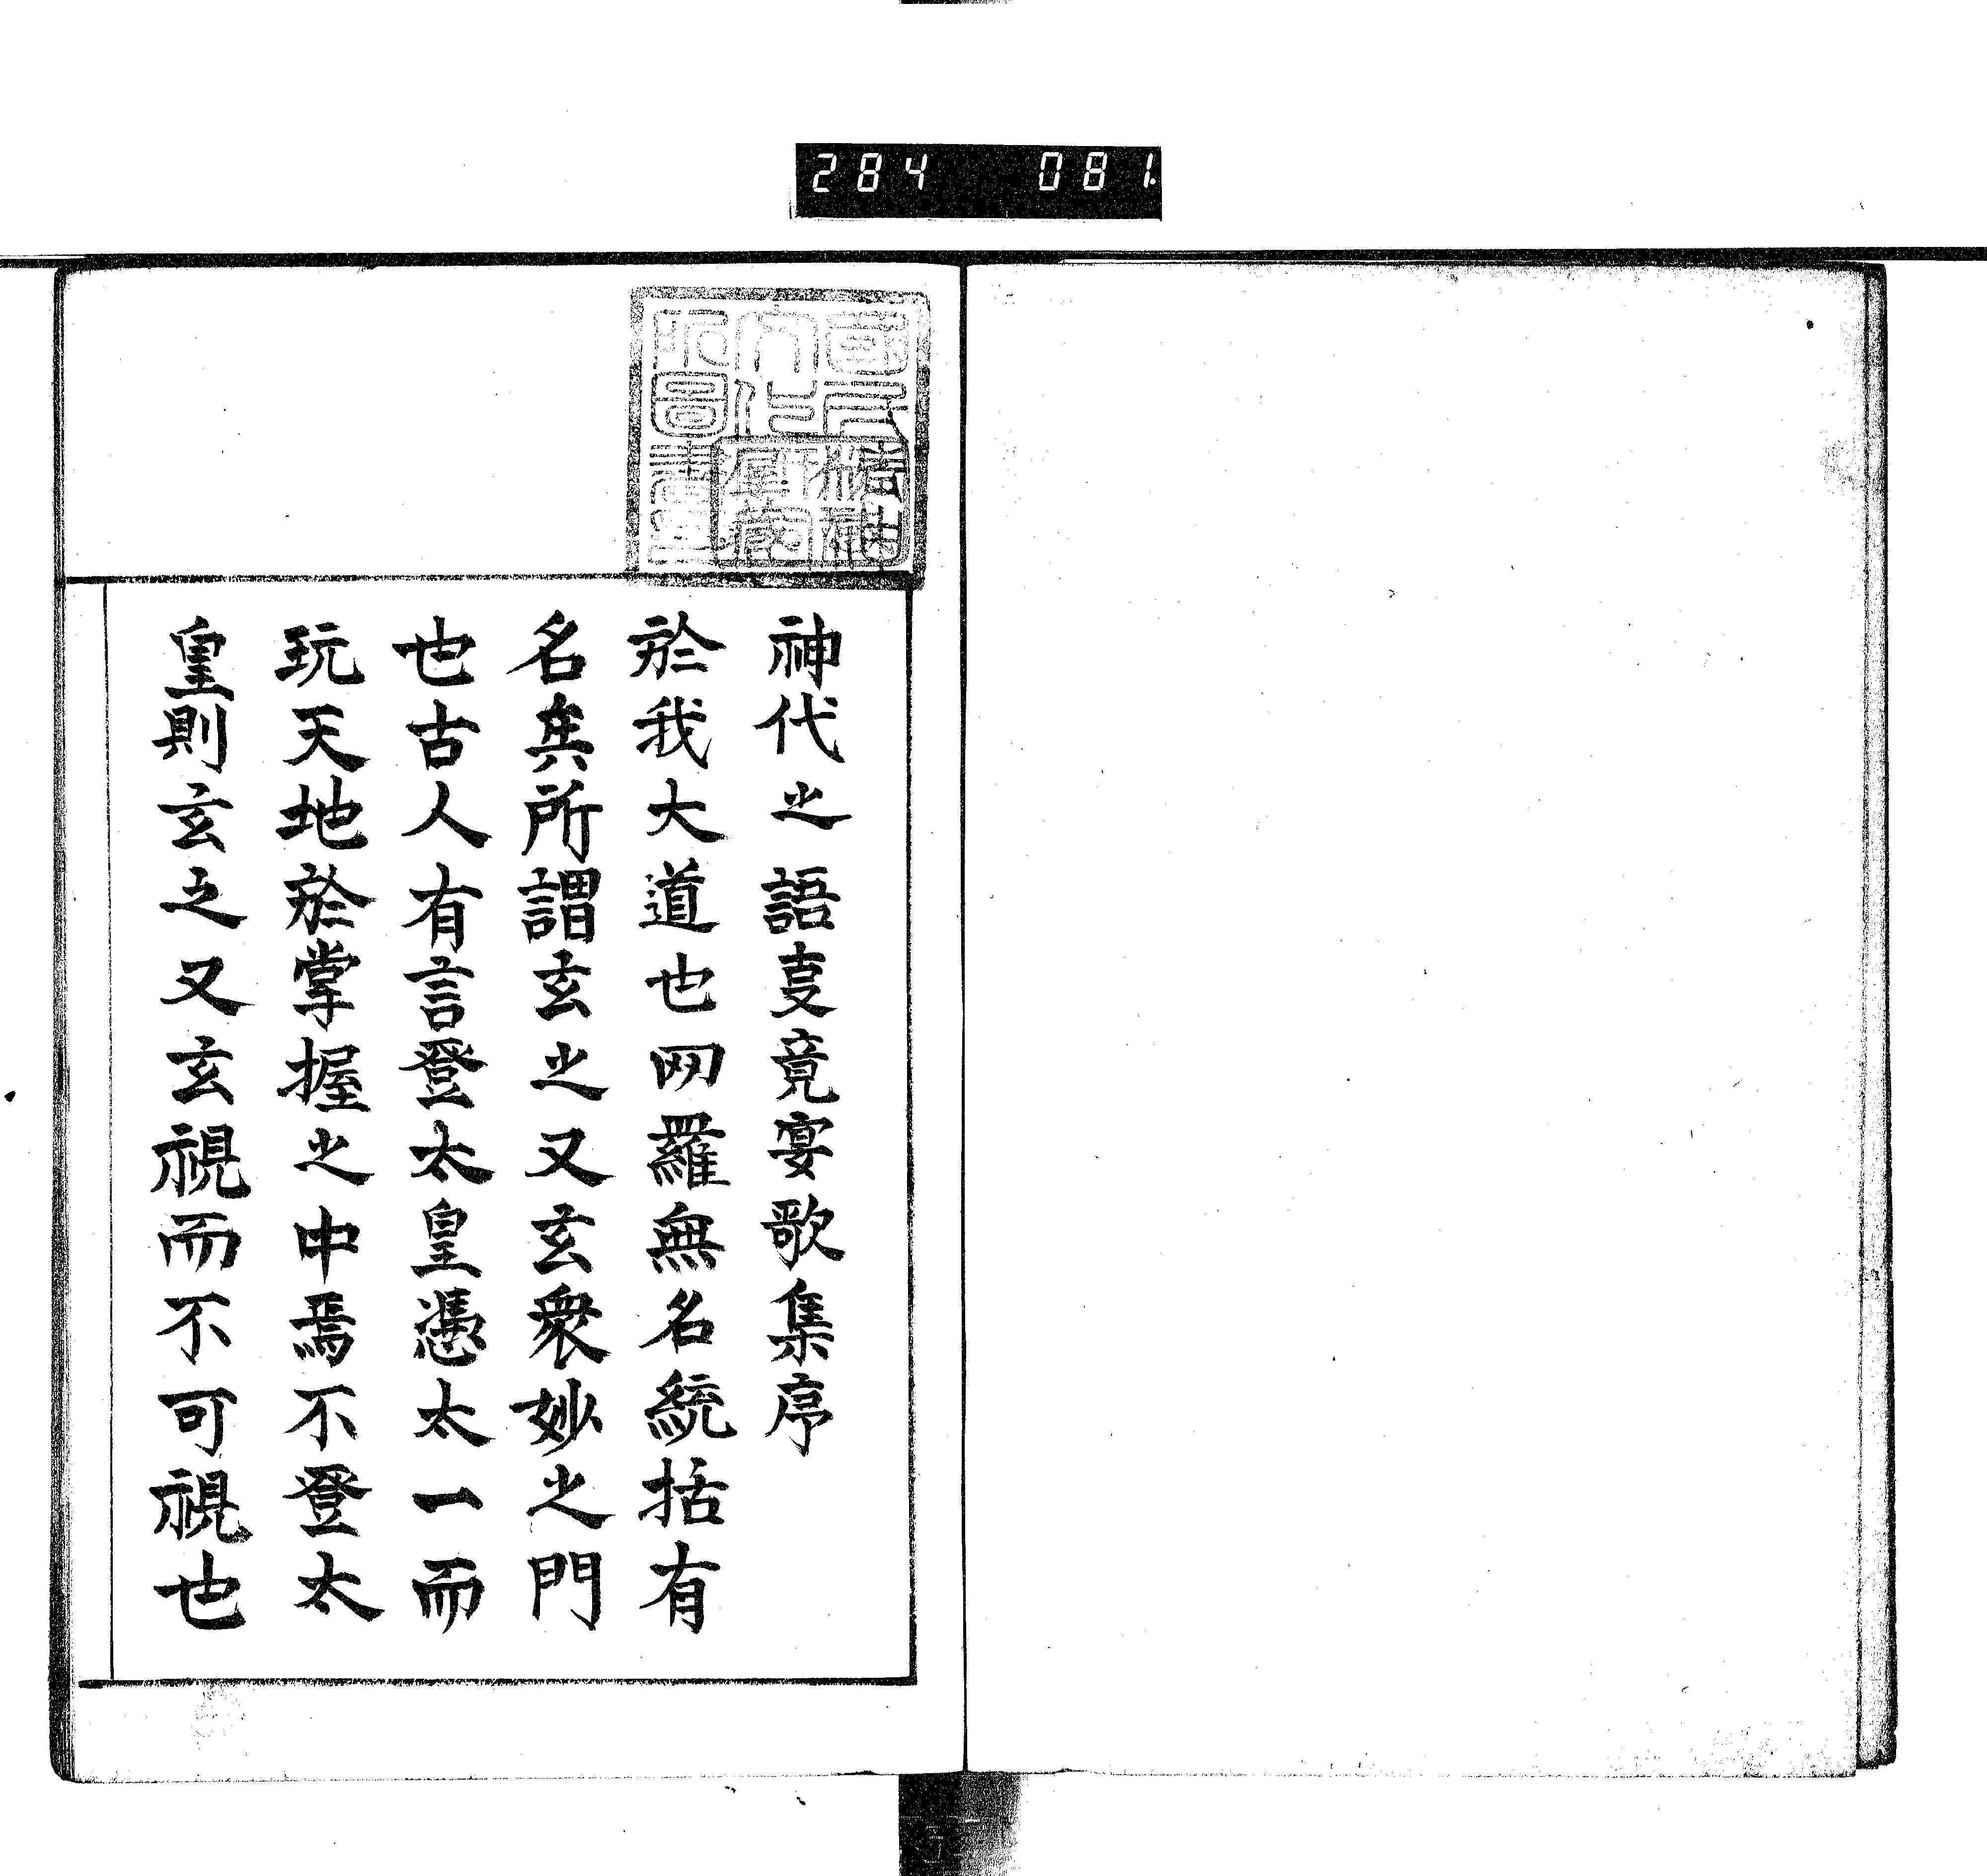 284 081.
國文
學研
究圖
書
神代之語㕝竟宴歌集序
於我大道也网羅無名統括有
名矣所謂玄之又玄衆妙之門
也古人有言登太皇憑太一而
玩天地於掌握之中焉不登太
皇則玄之又玄視而不可視也